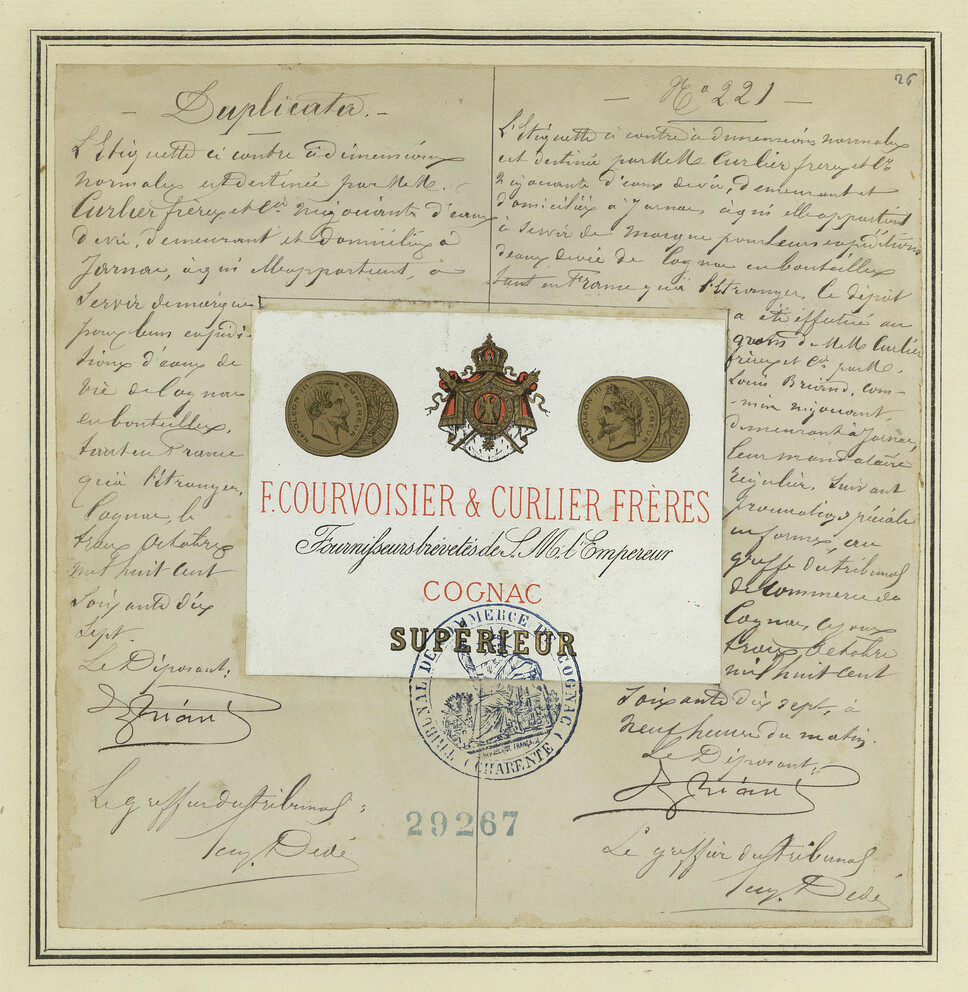 26
Duplicata.
L'Etiquette ci contre à dimensions
normales est destinée par M M.
Curlier frères et Cie négociants d'eaux
de vie, demeurant et domiciliés à
Jarnac, à qui elle appartient, à
servir de marque
pour leurs expédi-
tions d'eaux de
vie de Cognac
en bouteilles,
tant en France
qu'à l'étranger.
Cognac, le
trois Octobre
mil huit cent
soixante dix
sept.
Le Déposant,
Briand
Le greffier du tribunal
Dédé
No 221
L'Etiquette ci contre à dimensions normales
est destinée par M M. Curlier frères et Cie
négociants d'eaux de vie, demeurant et
domiciliés à Jarnac à qui elle appartient
à servir de marque pour leurs expéditions
d'eaux de vie de Cognac en bouteilles
tant en France qu'à l'Etranger, le dépôt
a été effectué au
nom de M M. Curlier
frères et Cie par M.
Louis Briand, com-
mis négociant
demeurant à Jarnac,
leur mandataire
régulier, suivant
procuration spéciale
en forme, au
greffe du tribunal
de Commerce de
Cognac, ce jour
trois Octobre
mil huit cent
soixante dix sept, à
neuf heures du matin.
Le Déposant,
Briand
Le greffier du tribunal
Dédé
NAPOLEON III EMPEREUR
NAPOLEON III EMPEREUR
F. COURVOISIER & CURLIER FRÈRES
Fournisseurs brevetés de S. M. l'Empereur
COGNAC
SUPÉRIEUR
TRIBUNAL DE COMMERCE DE COGNAC
(CHARENTE)
RÉPUBLIQUE FRANÇAISE
29267